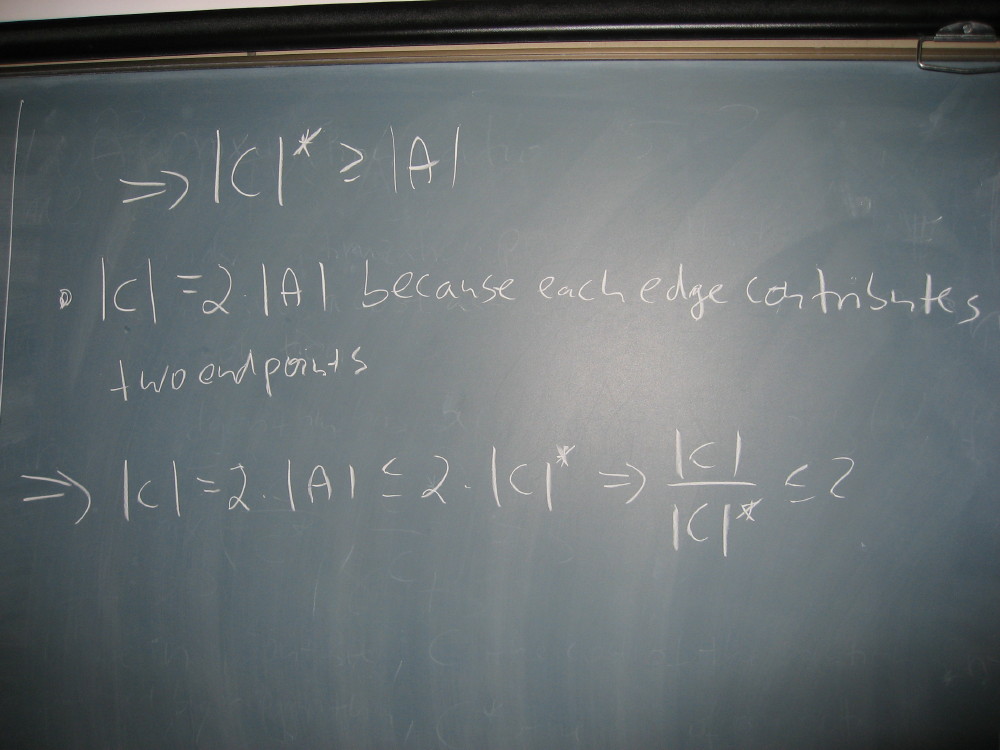 ⇒ |C|* ≥ |A|
• |C| = 2·|A| because each edge contributes
two endpoints
⇒ |C| = 2·|A| ≤ 2·|C|* ⇒ |C|/|C|* ≤ 2